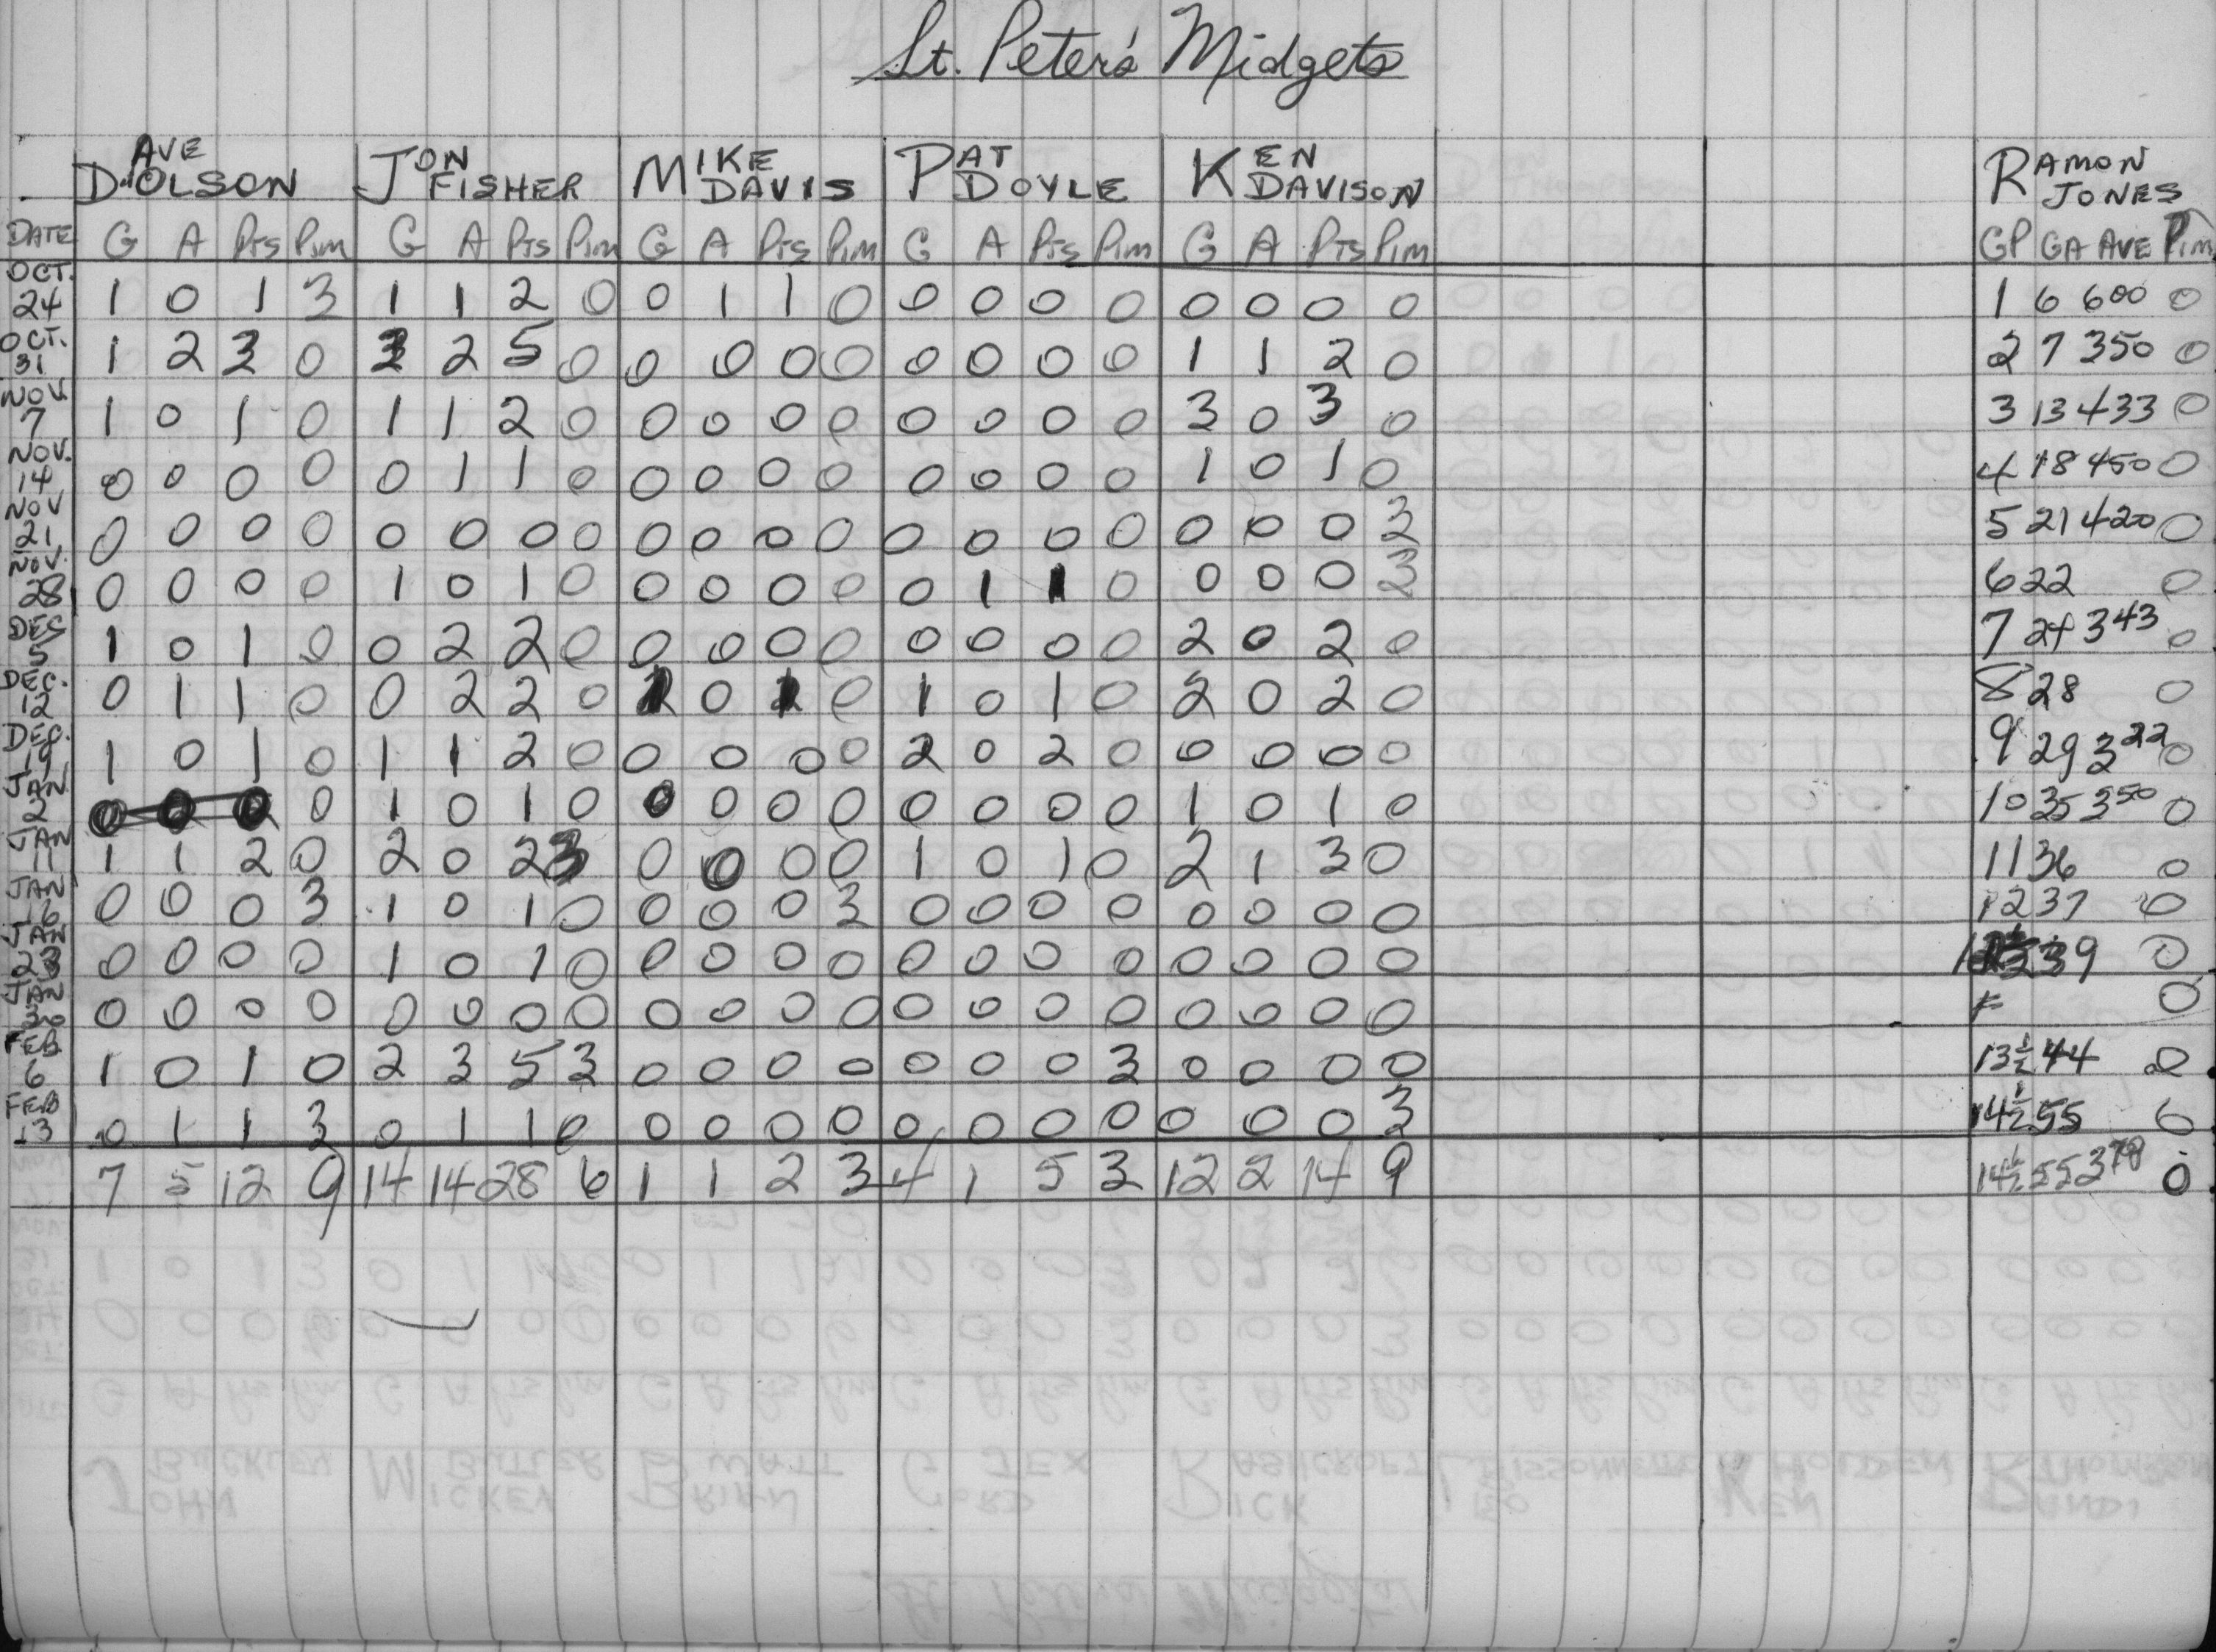 St. Peter's Midgets
DAVE OLSON JON FISHER MIKE DAVIS PAT DOYLE KEN DAVISON RAMON JONES
DATE G A Pts Pim G A Pts Pim G A Pts Pim G A Pts Pim G A Pts Pim GP GA AVE Pim
OCT. 24 1 0 1 3 1 1 2 0 0 1 1 0 0 0 0 0 0 0 0 0 1 6 600 0
OCT. 31 1 2 3 0 3 2 5 0 0 0 0 0 0 0 0 0 1 1 2 0 2 7 350 0
NOV. 7 1 0 1 0 1 1 2 0 0 0 0 0 0 0 0 0 3 0 3 0 3 13 433 0
NOV. 14 0 0 0 0 0 1 1 0 0 0 0 0 0 0 0 0 1 0 1 0 4 18 450 0
NOV 21 0 0 0 0 0 0 0 0 0 0 0 0 0 0 0 0 0 0 0 3 5 21 420 0
NOV. 28 0 0 0 0 1 0 1 0 0 0 0 0 0 1 1 0 0 0 0 3 6 22 0
DES 5 1 0 1 0 0 2 2 0 0 0 0 0 0 0 0 0 2 0 2 0 7 24 343 0
DEC. 12 0 1 1 0 0 2 2 0 1 0 1 0 1 0 1 0 2 0 2 0 8 28 0
DEC. 19 1 0 1 0 1 1 2 0 0 0 0 0 2 0 2 0 0 0 0 0 9 29 322 0
JAN 2 0 0 0 0 1 0 1 0 0 0 0 0 0 0 0 0 1 0 1 0 10 35 350 0
JAN 11 1 1 2 0 2 0 2 3 0 0 0 0 1 0 1 0 2 1 3 0 11 36 0
JAN 16 0 0 0 3 1 0 1 0 0 0 0 3 0 0 0 0 0 0 0 0 12 37 0
JAN 23 0 0 0 0 1 0 1 0 0 0 0 0 0 0 0 0 0 0 0 0 39 0
JAN 30 0 0 0 0 0 0 0 0 0 0 0 0 0 0 0 0 0 0 0 0 0
FEB. 6 1 0 1 0 2 3 5 3 0 0 0 0 0 0 0 3 0 0 0 0 13½ 44 0
FEB 13 0 1 1 3 0 1 1 0 0 0 0 0 0 0 0 0 0 0 0 3 14½ 55 0
7 5 12 9 14 14 28 6 1 1 2 3 4 1 5 3 12 2 14 9 14½ 55 379 0